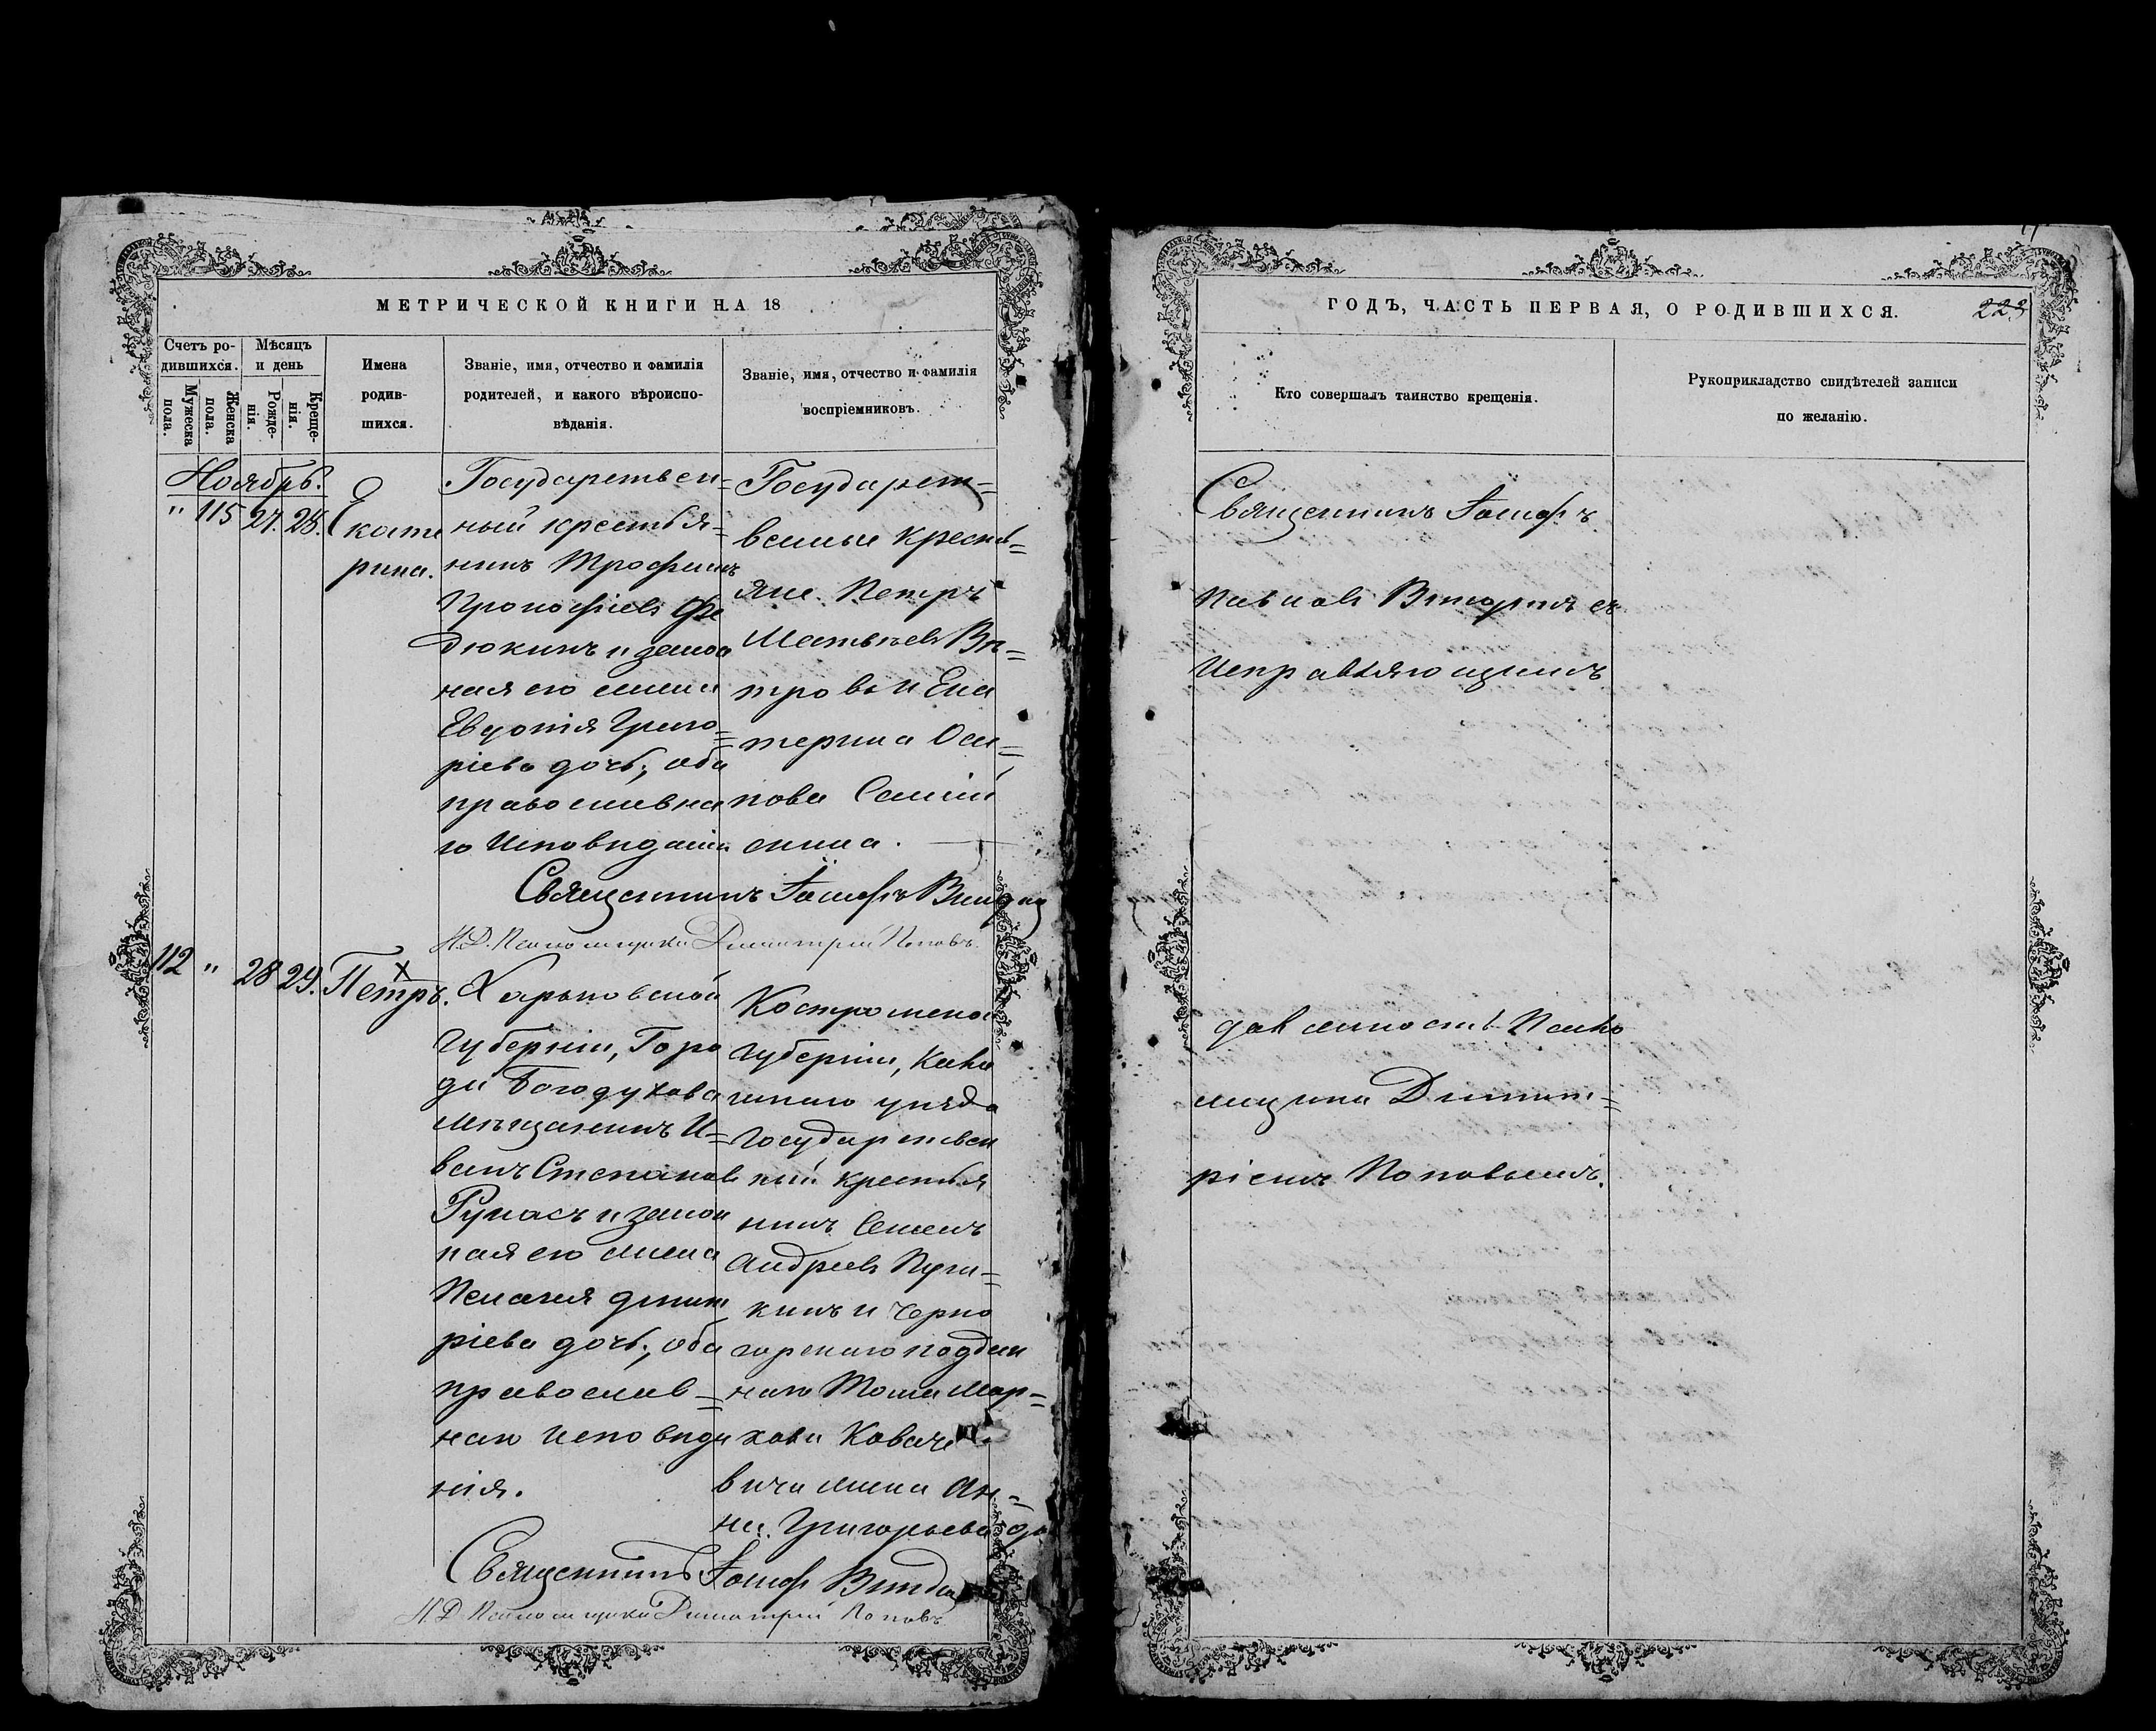 МЕТРИЧЕСКОЙ КНИГИ НА 18
Счетъ ро-
дившихся.
Мужеска
пола.
Женска
пола.
Мѣсяцъ
и день
Рожде-
нія.
Креще-
нія.
Имена
родив-
шихся.
Званіе, имя, отчество и фамилія
родителей, и какого вѣроиспо-
вѣданія.
Званіе, имя, отчество и фамилія
воспріемниковъ.
Ноябрь.
" 115 27. 28.
Екате
рина.
Государствен-
ный крестья-
нинъ Трофимъ
Прокофіевъ Фе
дюкинъ и закон
ная его жена
Евдокія Григо-
ріева дочь; оба
православна
го Исповѣданія
Государст-
венные крестья-
яне Петръ
Матвѣевъ Вѣ-
тровъ и Ека
терина Оси-
пова
Священникъ Іосифъ
И.Д. Псаломщика Димитрій Поповъ.
112 " 28 29. Петръ.
Харьковской
Губерніи, Горо
да Богодухова
мѣщанинъ И-
ванъ Степановъ
и закон
ная его жена
Пелагія Димит
ріева дочь; оба
православ-
наго исповѣда
нія.
Костромской
губерніи,
уѣзда
Государствен
ный крестья
нинъ Семенъ
Андреевъ
кинъ и Черно
горскаго поддан
наго Тома Мар-
кова Коваче
вича жена Ан-
на Григорьева до
Священникъ Іосифъ
И.Д. Псаломщика Димитрій Поповъ
ГОДЪ, ЧАСТЬ ПЕРВАЯ, О РОДИВШИХСЯ.
223
Кто совершалъ таинство крещенія.
Рукоприкладство свидѣтелей записи
по желанію.
Священникъ Іосифъ
съ
Исправляющимъ
должность Псало
мщика Димит-
ріемъ Поповымъ.